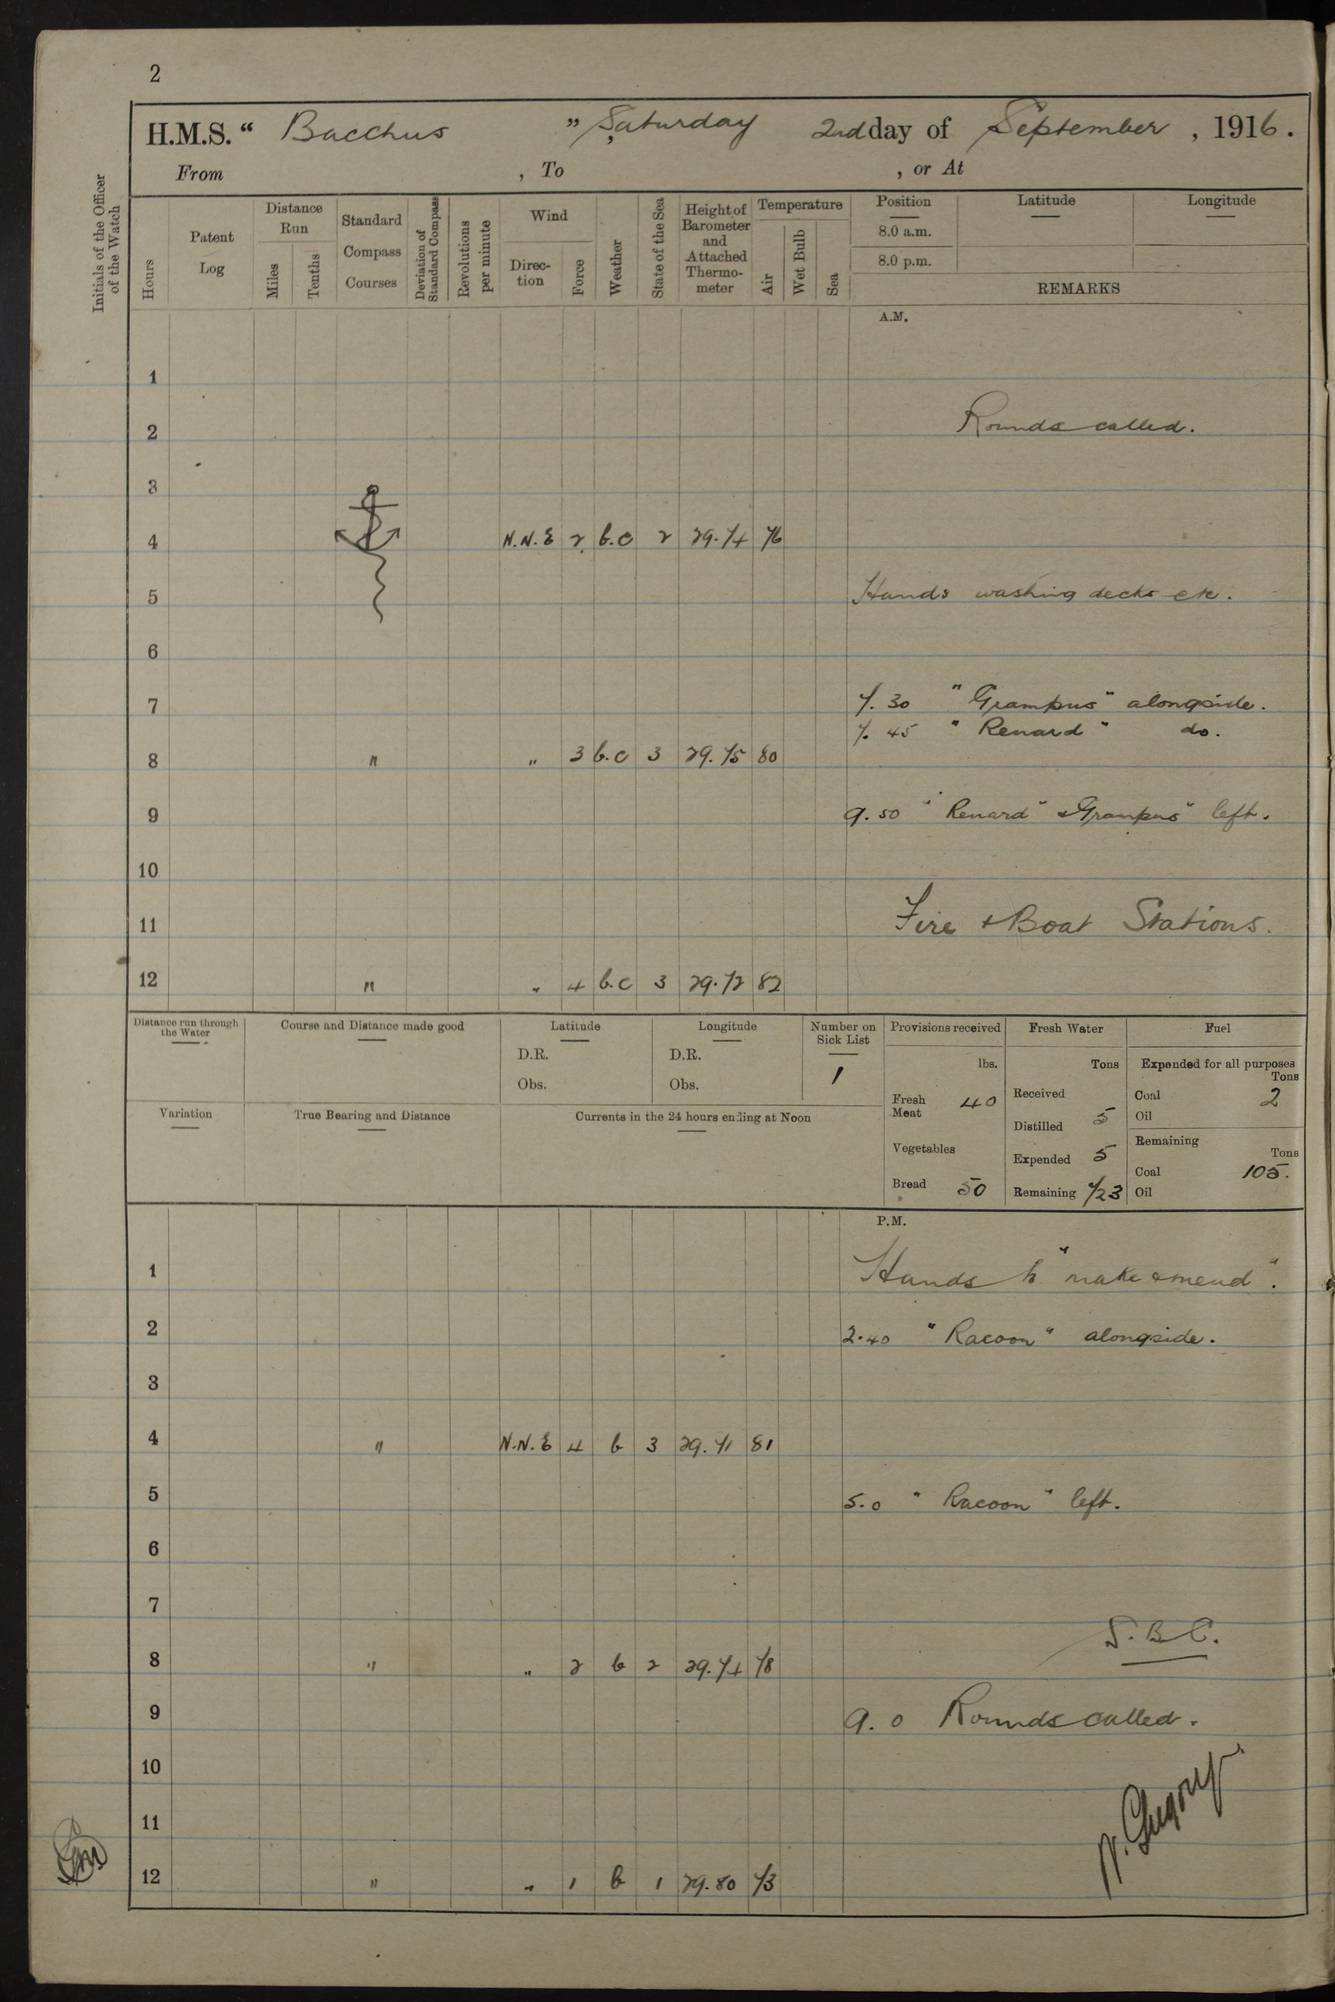 2
H.M.S. “ Bacchus ” Saturday 2nd day of September , 1916.
From , To , or At
Initials of the Officer of the Watch
Hours
Patent Log
Distance Run
Miles
Tenths
Standard Compass Courses
Deviation of Standard Compass
Revolutions per minute
Wind
Direc-tion
Force
Weather
State of the Sea
Height of Barometer and Attached Thermo-meter
Temperature
Air
Wet Bulb
Sea
Position
8.0 a.m.
8.0 p.m.
Latitude
Longitude
REMARKS
A.M.
1
2 Rounds called.
3
4 N.N.E 2 b.c 2 29.74 76
5 Hands washing decks etc.
6
7 7.30 "Grampus" alongside.
7.45 "Renard" do.
8 " " 3 b.c 3 29.75 80
9 9.50 "Renard" & Grampus" left.
10
11 Fire & Boat Stations.
12 " " 4 b.c 3 29.72 82
Distance run through the Water
Course and Distance made good
Latitude
D.R.
Obs.
Longitude
D.R.
Obs.
Number on Sick List
1
Provisions received
lbs.
Fresh Meat 40
Vegetables
Bread 50
Fresh Water
Tons
Received
Distilled 5
Expended 5
Remaining 723
Fuel
Expended for all purposes
Tons
Coal 2
Oil
Remaining
Tons
Coal 105.
Oil
Variation
True Bearing and Distance
Currents in the 24 hours ending at Noon
P.M.
1 Hands to "make & mend".
2 2.40 "Racoon" alongside.
3
4 " N.N.E 4 b 3 29.71 81
5 5.0 "Racoon" left.
6
7
S.B.C.
8 " " 2 b 2 29.74 78
9 9.0 Rounds called.
10
11
12 " " 1 b 1 29.80 73